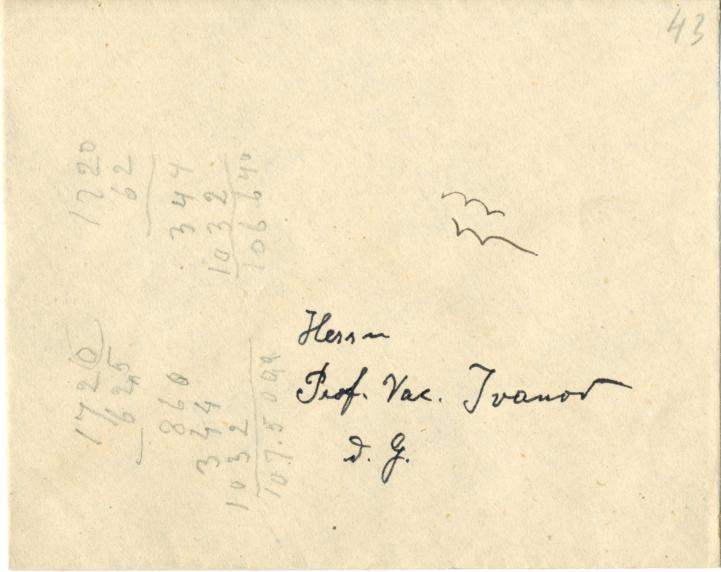 43
1720
62
344
1032
106 640
1720
62,5
860
344
1032
107.5 000
Herrn
Prof. Vac. Ivanov
d. G.